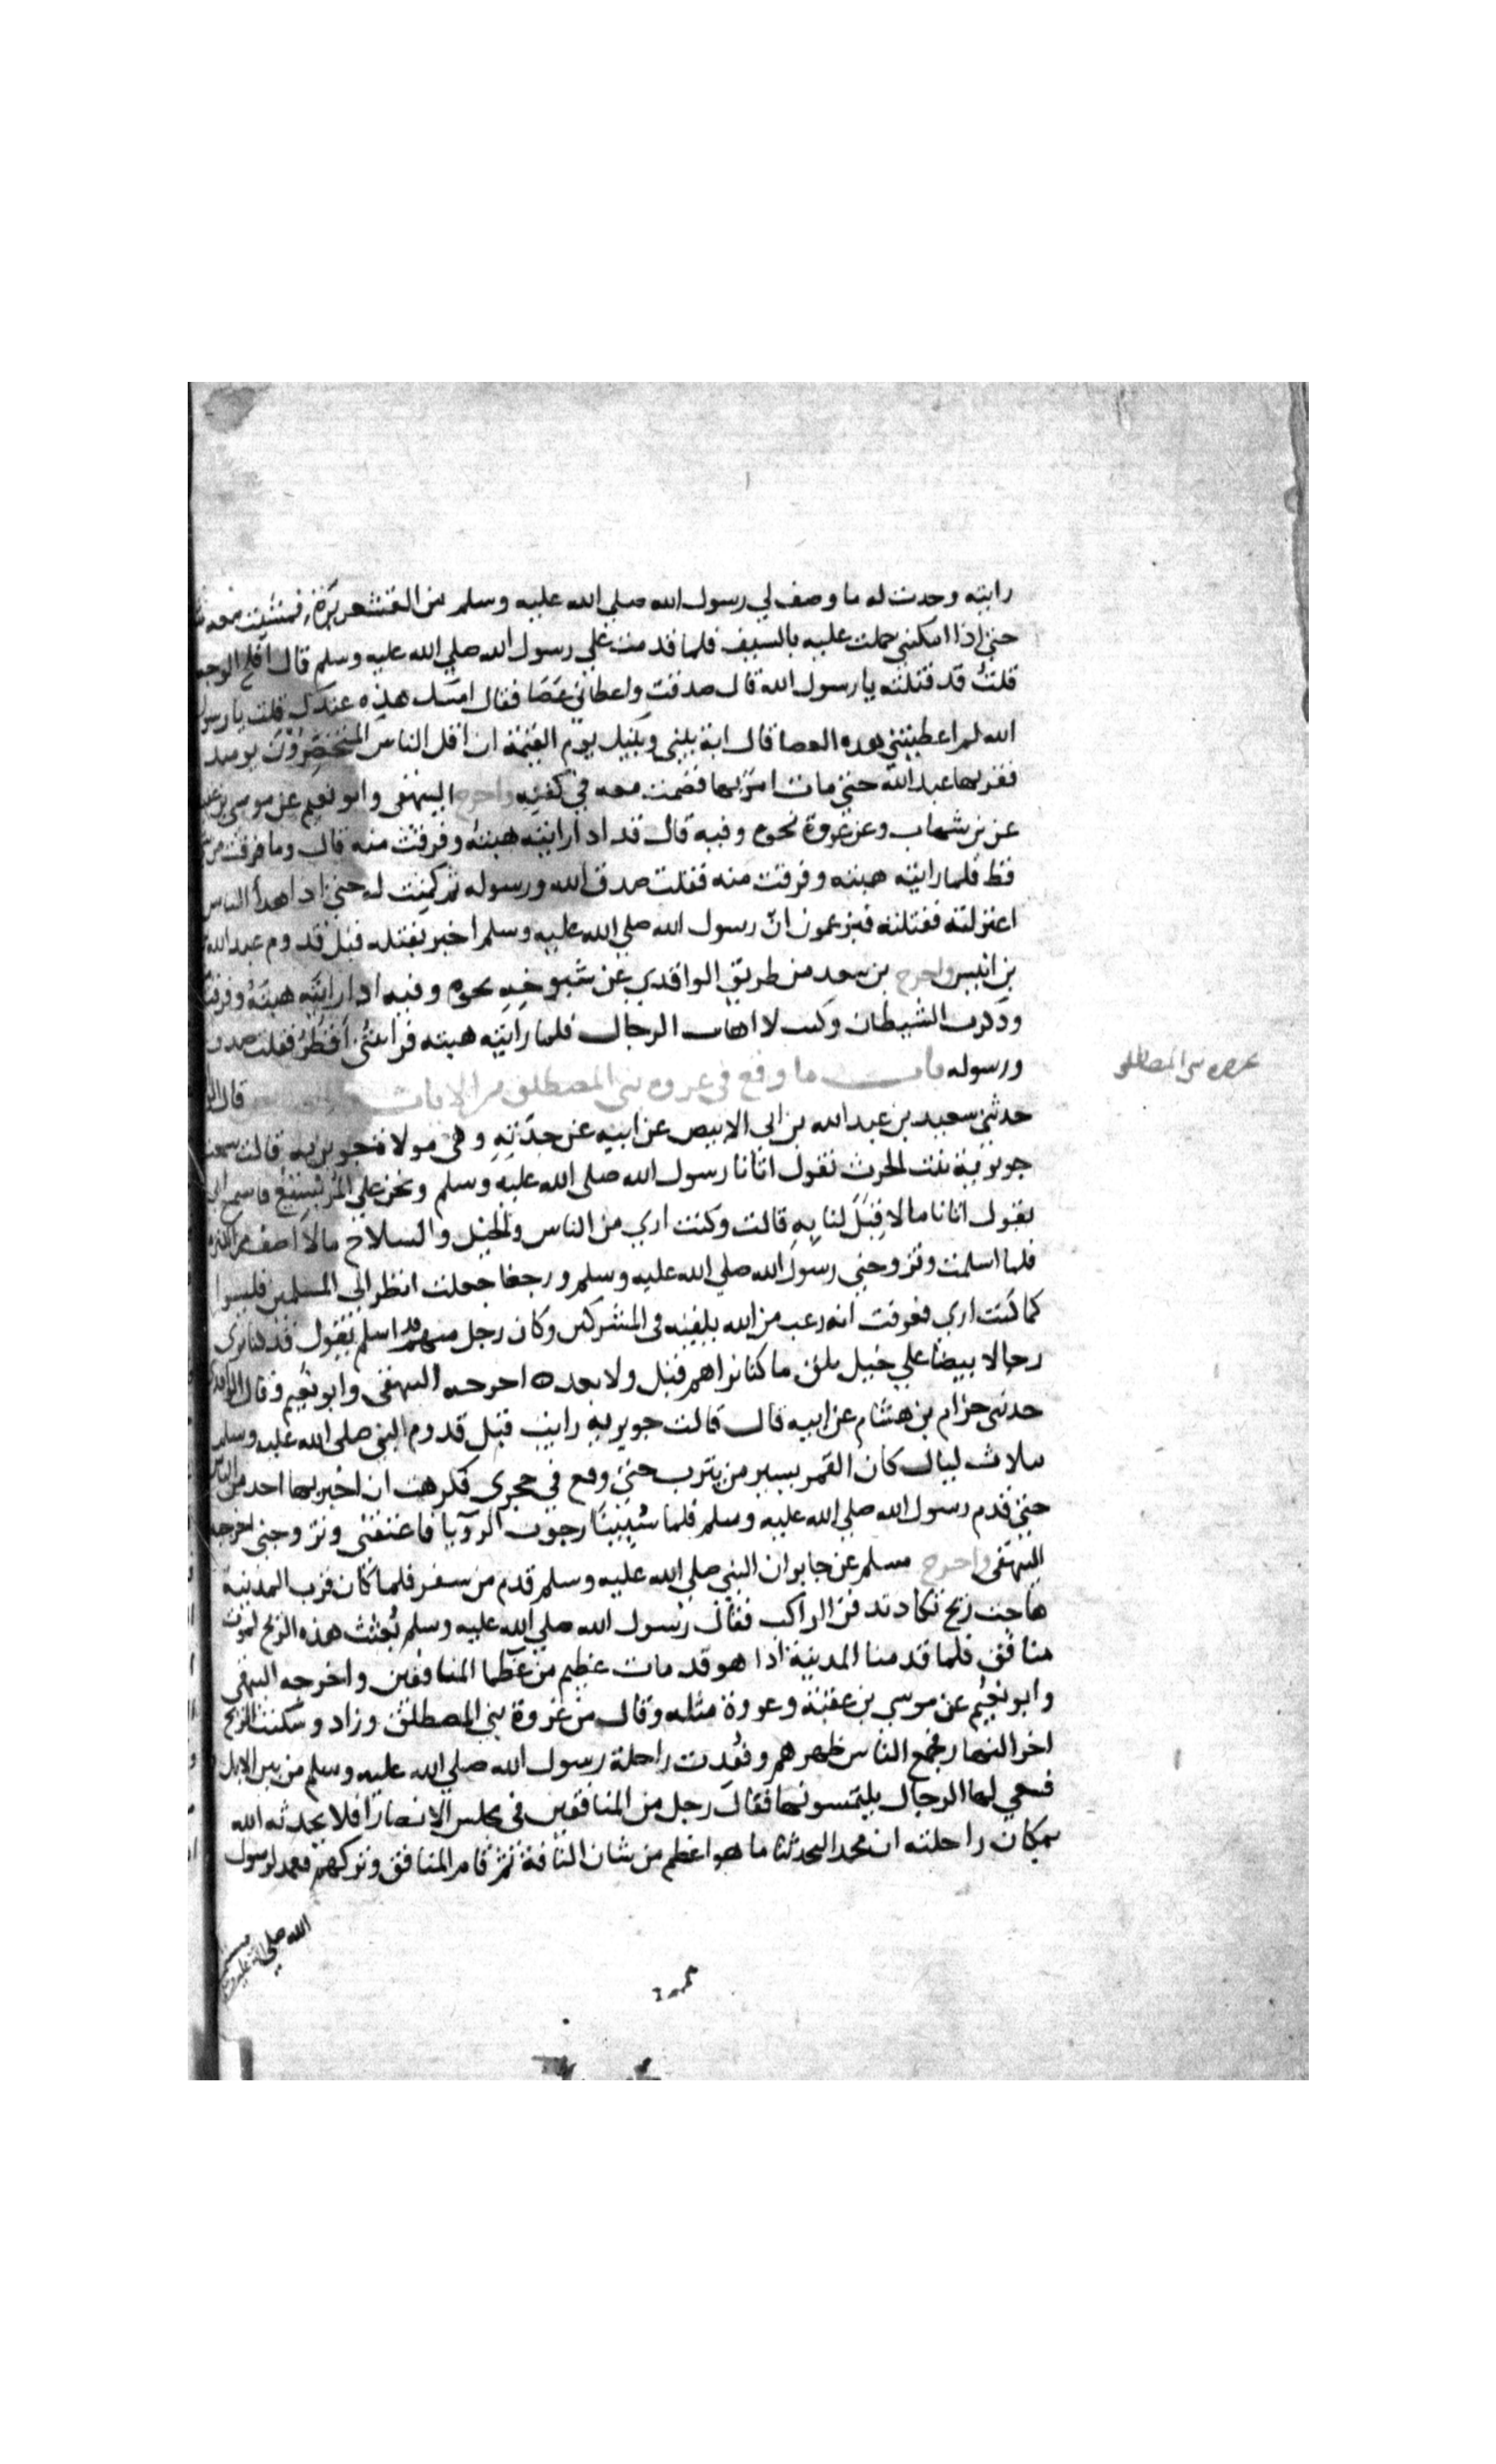 رايته وجدت له ما وصف لي رسول الله صلي الله عليه وسلم من القشعريرة فمشيت معه
حتي اذا امكنني حملت عليه بالسيف فلما قدمت علي رسول الله صلي الله عليه وسلم قال افلح الوجه
قلت قد قتلته يا رسول الله قال صدقت واعطاني عصا فقال امسك هذه عندك قلت يا رسول
الله لم اعطيتني هده العصا قال اية بيني وبينك يوم القيمة ان اقل الناس المتخصرون يوميد
فقربها عبد الله حتي مات امر بها فضمت معه في كفنه واخرج البيهقي وابو نعيم عن موسي بن عقبة
عن بن شهاب وعن عروة نحوه وفيه قال قد ادا رايته هبته وفرقت منه قال وما فرقت من
قط فلما رايته هبته وفرقت منه فقلت صدق الله ورسوله ثم كمنت له حتي ادا هدأ الناس
اغترلته فقتلته فيزعمون ان رسول الله صلي الله عليه وسلم اخبر بقتله قبل قدوم عبد الله
بن انيس واخرج بن سعد من طريق الواقدي عن شيوخه نحوه وفيه ادا رايته هبته وفرقت
ودكرت الشيطان وكنت لا اهاب الرجال فلما رايته هبته فرايتني اقطر فقلت صدق
ورسوله باب ما وقع في غزوة بني المصطلق من الايات قال
غزوة بني المصطلق
حدثني سعيد بن عبد الله بن ابي الابيض عن ابيه عن جدته وهي مولاة جويرية قالت سمعت
جويرية بنت الحرث تقول اتانا رسول الله صلي الله عليه وسلم ونحن علي المريسيع فاسمع ابي
يقول اتانا ما لا قبل لنا به قالت وكنت اري من الناس والخيل والسلاح ما لا اصف من الكثرة
فلما اسلمت وتزوجني رسول الله صلي الله عليه وسلم ورجعنا جعلت انظر الي المسلمين فليسوا
كما كنت اري فعرفت انه رعب من الله يلقيه في المشركين وكان رجل منهم قد اسلم يقول قد كنا نري
رجالا بيضا علي خيل بلق ما كنا نراهم قبل ولا بعد ه اخرجه البيهقي وابو نعيم وقال الواقدي
حدثني حزام بن هشام عن ابيه قال قالت جويرية رايت قبل قدوم النبي صلي الله عليه وسلم
بثلاث ليال كان القمر يسير من يثرب حتي وقع في حجري فكرهت ان اخبر بها احد من الناس
حتي قدم رسول الله صلي الله عليه وسلم فلما سُبينا رجوت الرويا فاعتقني وتزوجني اخرجه
البيهقي واخرج مسلم عن جابر ان النبي صلي الله عليه وسلم قدم من سفر فلما كان قرب المدينة
هاجت ريح تكاد تدفن الراكب فقال رسول الله صلي الله عليه وسلم بُعثت هذه الريح لموت
منافق فلما قدمنا المدينة اذا هو قد مات عظيم من عظما المنافقين واخرجه البيهقي
وابو نعيم عن موسي بن عقبة وعروة مثله وقال من غزوة بني المصطلق وزاد وسكنت الريح
اخر النهار فجمع الناس ظهرهم وفقدت راحلة رسول الله صلي الله عليه وسلم من بين الابل
فسعي لها الرجال يلتمسونها فقال رجل من المنافقين في مجلس الانصار افلا يحدثه الله
بمكان راحلته ان محمد اليحدثنا ما هو اعظم من شان الناقة ثم قام المنافق وتركهم فعمد لرسول
الله صلي الله عليه وسلم